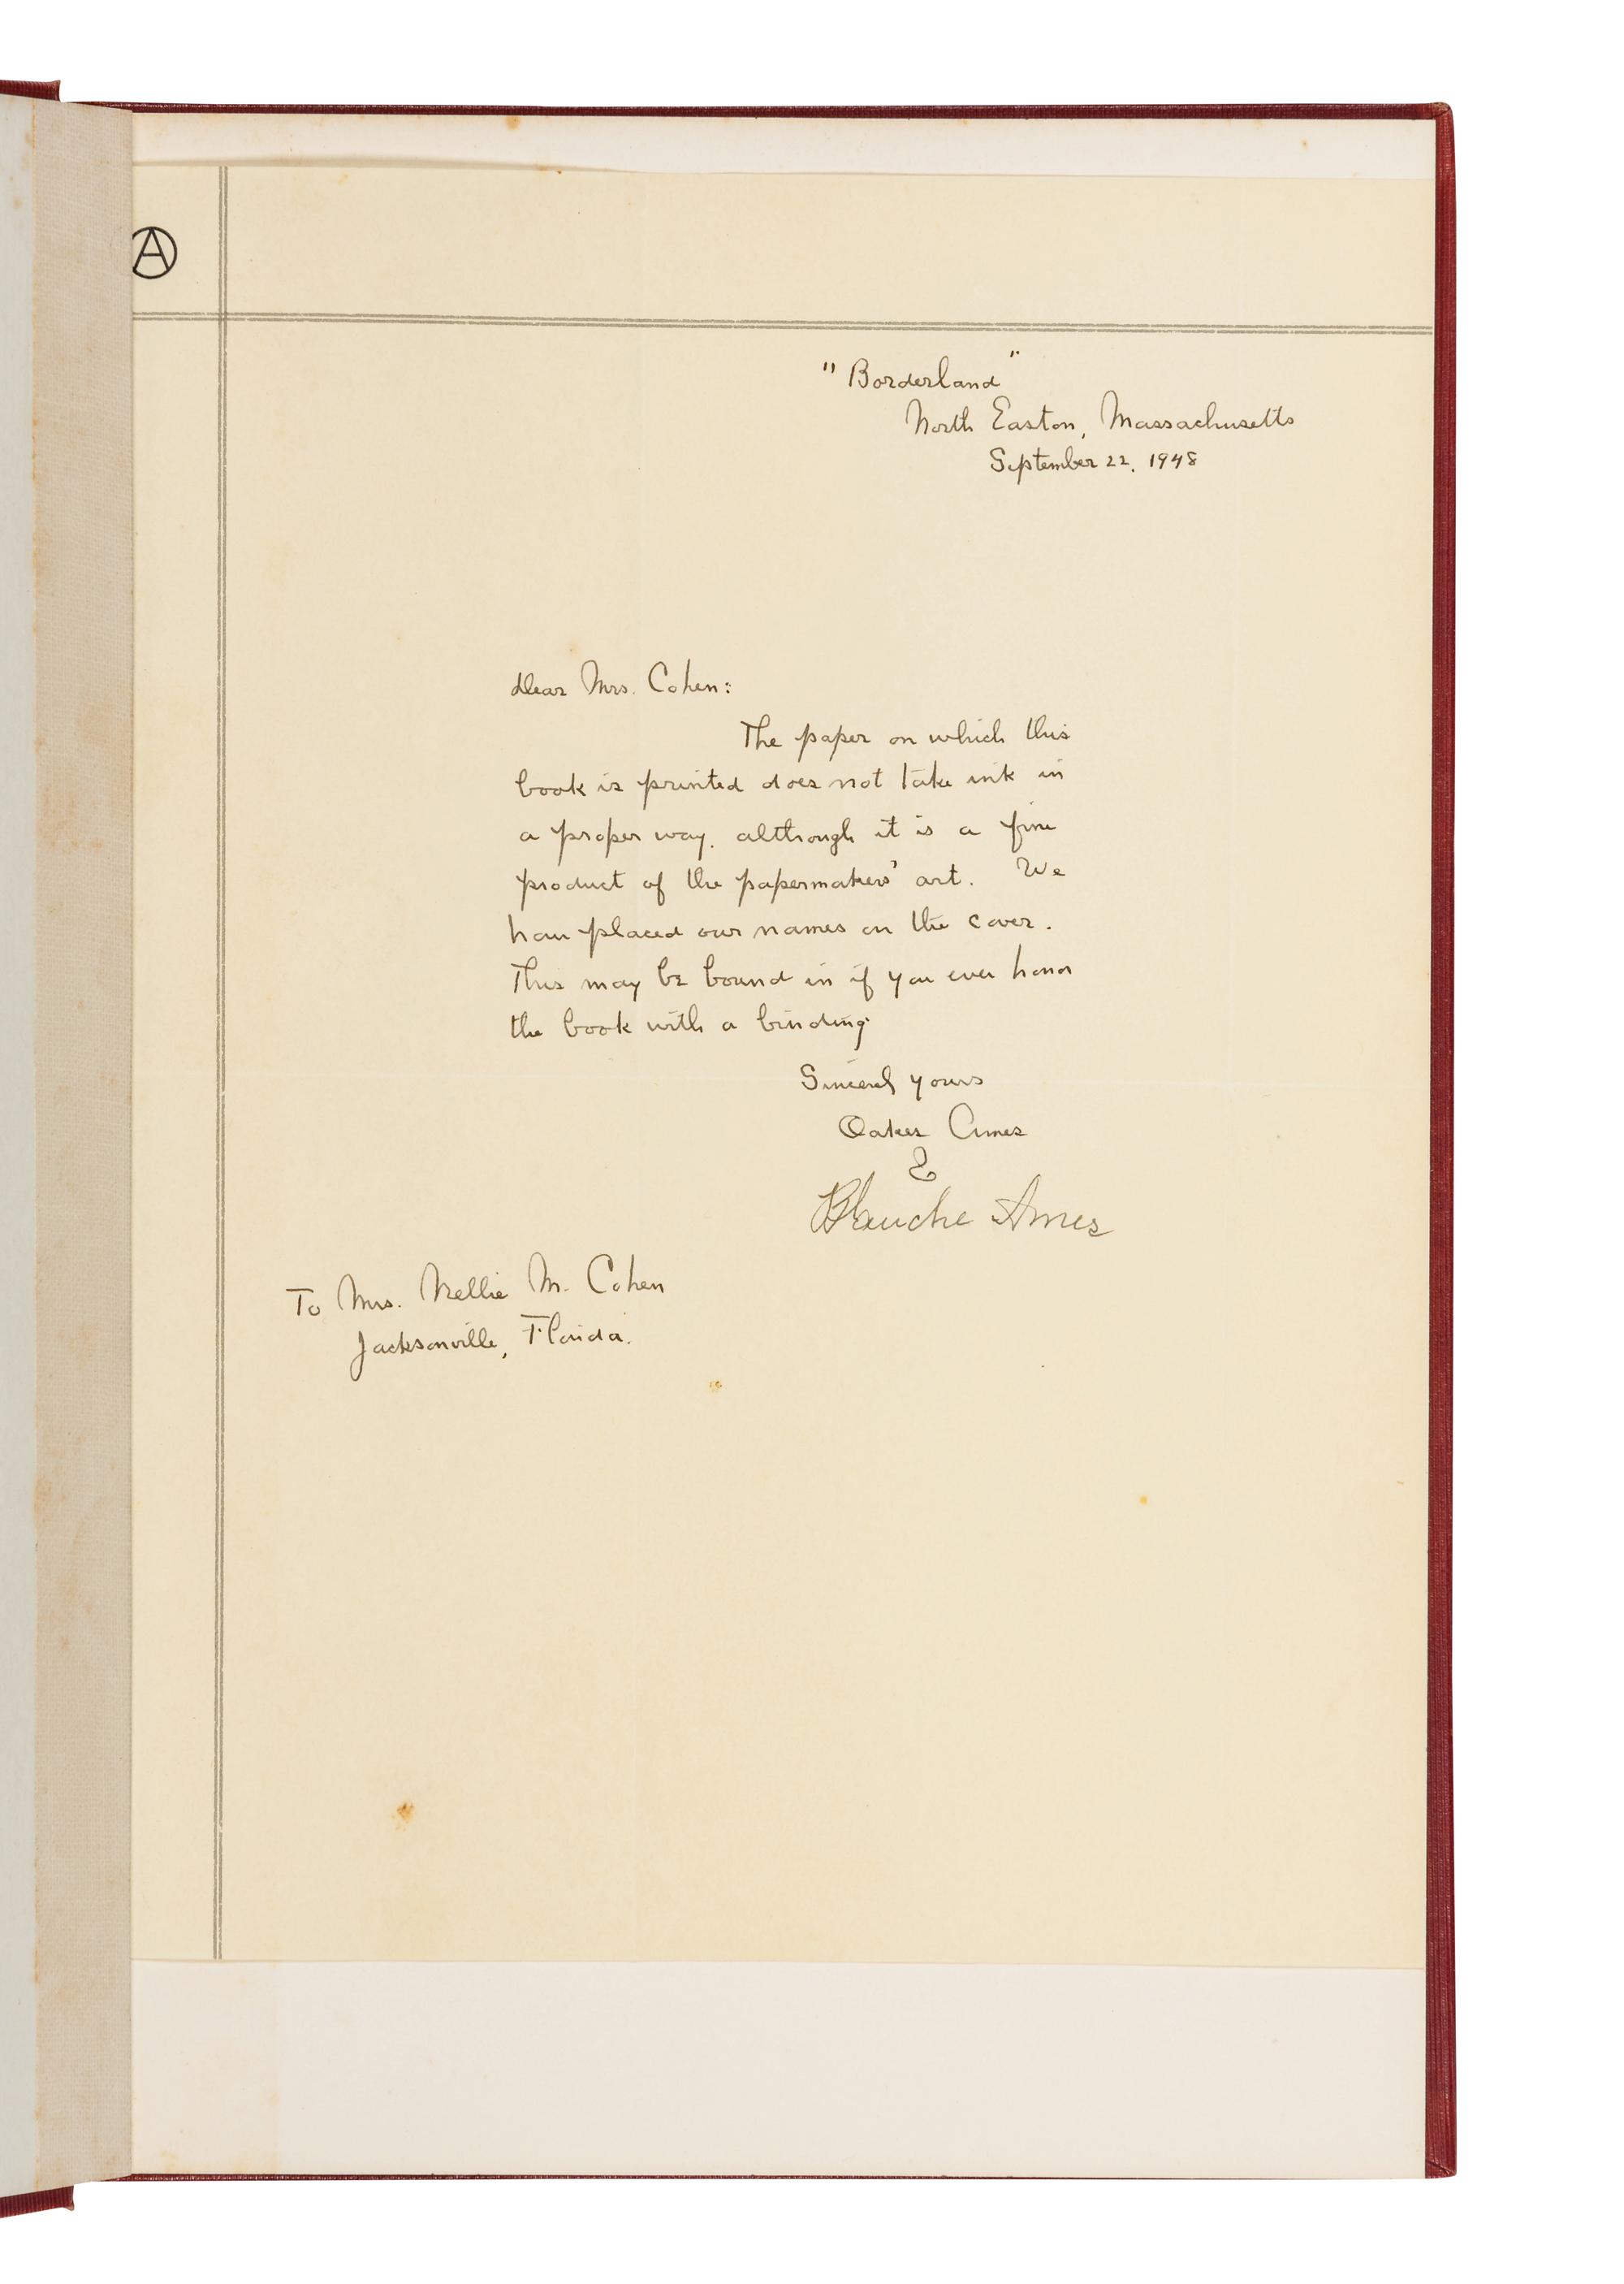 Ⓐ
"Borderland"
North Easton, Massachusetts
September 22, 1948
Dear Mrs. Cohen:
The paper on which this
book is printed does not take ink in
a proper way, although it is a fine
product of the papermakers' art. We
have placed our names on the cover.
This may be bound in if you ever honor
the book with a binding.
Sincerely yours
Oakes Ames
&
Blanche Ames
To Mrs. Nellie M. Cohen
Jacksonville, Florida.